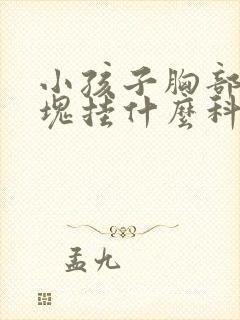 小孩子胸部
塊挂什麼科
孟九